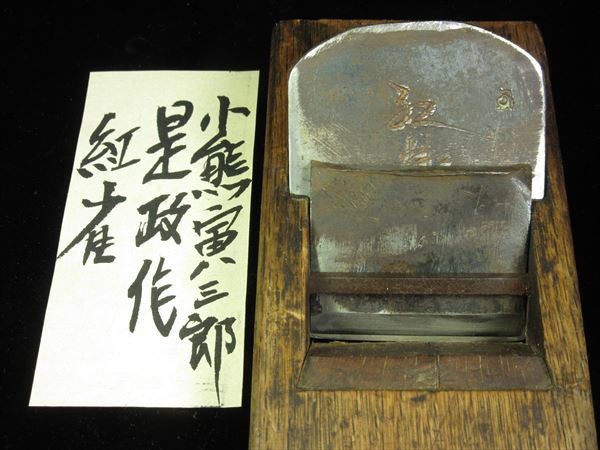 小熊寅三郎
是政作
紅雀
紅